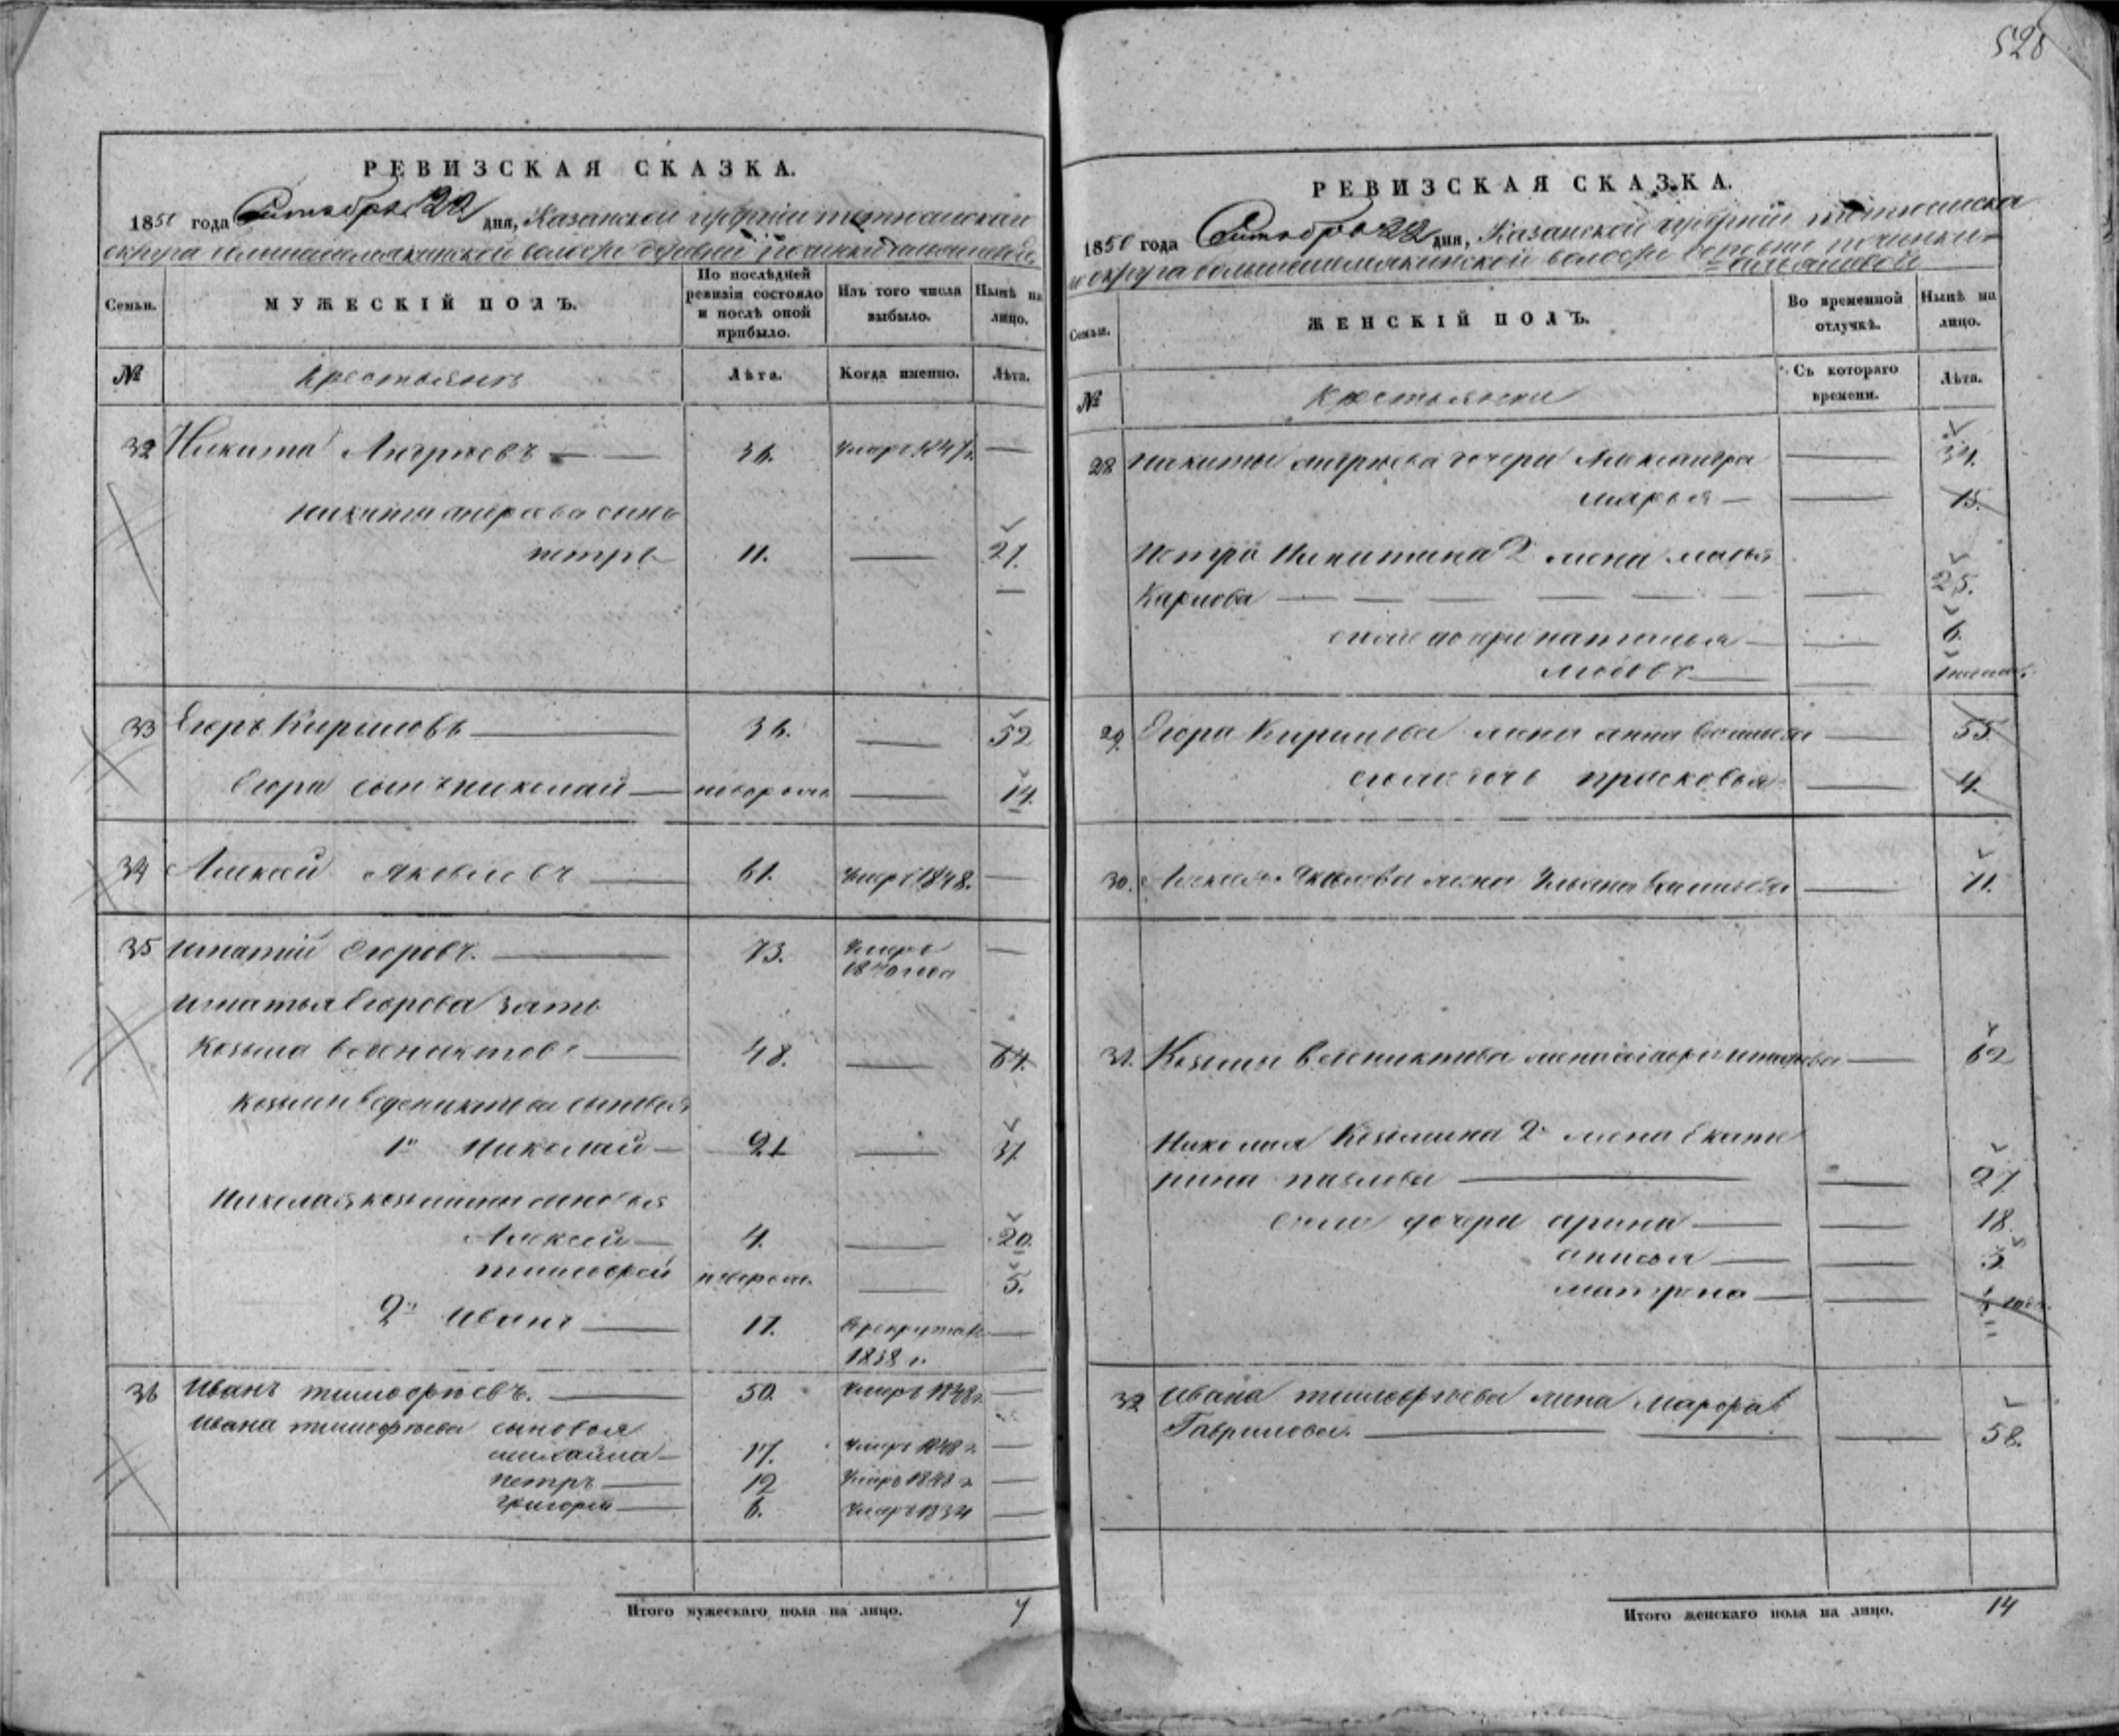 528
РЕВИЗСКАЯ СКАЗКА.
1850 года Октября 22 дня, Казанской губернии
округа волости деревни Починки
Семьи.
МУЖЕСКІЙ ПОЛЪ.
По послѣдней ревизіи состояло и послѣ оной прибыло.
Изъ того числа выбыло.
Нынѣ на лицо.
№
Крестьянъ
Лѣта.
Когда именно.
Лѣта.
32 Никита Андреевъ — — 36. умеръ 1847 г. —
никиты андреева сынъ
петръ 11. — 21.
—
33 Егоръ Кириловъ — 36. — 52
Егора сынъ николай — новорож. — 14.
34 Алексей яковлевъ — 61. умеръ 1848. —
35 игнатий егоровъ. — 73. умеръ —
1840 года
игнатья Егорова зять
Козьма веденихтовъ — 48. — 64.
козьмы веденихтова сыновья
1й Николай — 21 — 31
Николая козьмина сыновья
Алексей — 4. — 20.
тимофей новорож. — 5.
2й Иванъ — 17. в рекрутах —
1838 г.
36 Иванъ тимофеевъ. — 50. умеръ 1848 г. —
Ивана тимофеева сыновья
михайла — 17. умеръ 1848 г. —
петръ — 12 умеръ 1848 г. —
григорий — 6. умеръ 1834 —
Итого мужескаго пола на лицо. 7
РЕВИЗСКАЯ СКАЗКА.
1850 года Октября 22 дня, Казанской губернии
округа волости деревни починки
Семьи.
ЖЕНСКІЙ ПОЛЪ.
Во временной отлучкѣ.
Нынѣ на лицо.
№
Крестьянки
Съ котораго времени.
Лѣта.
28 никиты андреева дочери Александра — 34.
марья — — 15.
Петра Никитина 2 жена марья
Карпова — — — — — — — 25.
ихъ дочери наталья — — 6.
любовь — —
29. Егора Кирилова жена анна — 55
ихъ дочь прасковья — 4.
30. Алексея Яковлева жена Ульяна — 71.
31. Козьмы веденихтова жена — 62
Николая Козьмина 2я жена Екате
рина павлова — — 27.
ихъ дочери арина — — 18.
анисья — — 3.
матрена — —
32 Ивана тимофеева жена марфа
Гаврилова. — — — 58.
Итого женскаго пола на лицо. 14